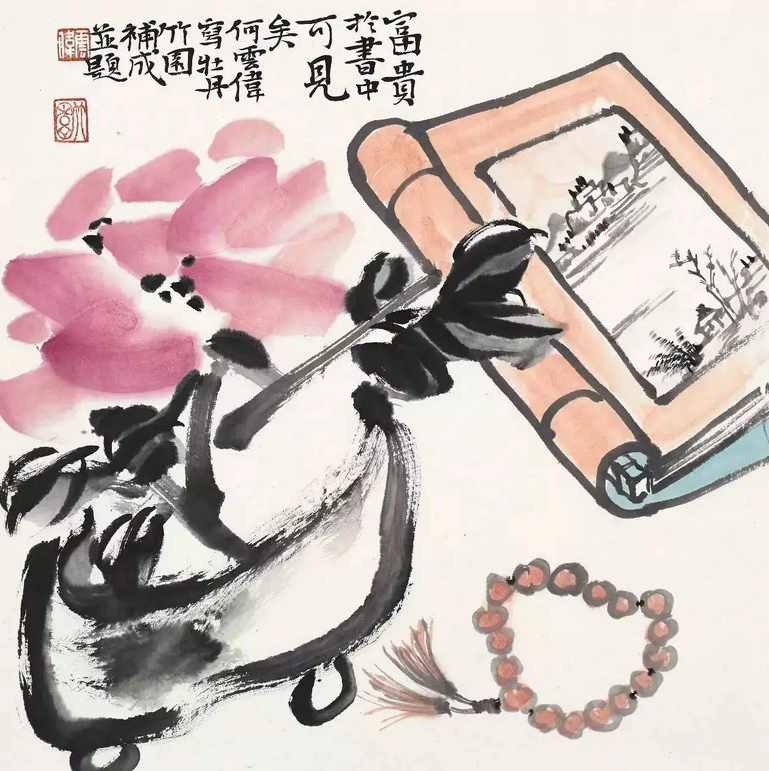 富貴
於書中
可見
矣
何雲偉
寫牡丹
竹園
補成
並題
雲偉